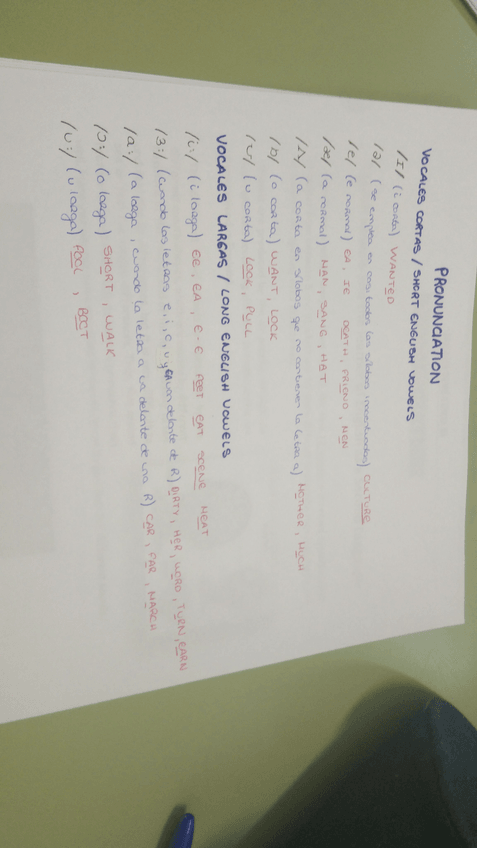 PRONUNCIATION
VOCALES CORTAS / SHORT ENGLISH VOWELS
/I/ (i corta) WANTED
/ə/ (se emplea en casi todas las sílabas inacentuadas) CULTURE
/e/ (e normal) EA, IE DEATH, FRIEND, MEN
/æ/ (a normal) MAN, SANG, HAT
/ʌ/ (a corta en sílabas que no contienen la letra a) MOTHER, MUCH
/ɒ/ (o corta) WANT, LOCK
/ʊ/ (u corta) LOOK, PULL
VOCALES LARGAS / LONG ENGLISH VOWELS
/i:/ (i larga) EE, EA, E-E FEET EAT SCENE MEAT
/3:/ (cuando las letras e, i, o, u y ea van delante de R) DIRTY, HER, WORD, TURN, EARN
/a:/ (a larga, cuando la letra a va delante de una R) CAR, FAR, MARCH
/ɔ:/ (o larga) SHORT, WALK
/u:/ (u larga) POOL, BOOT